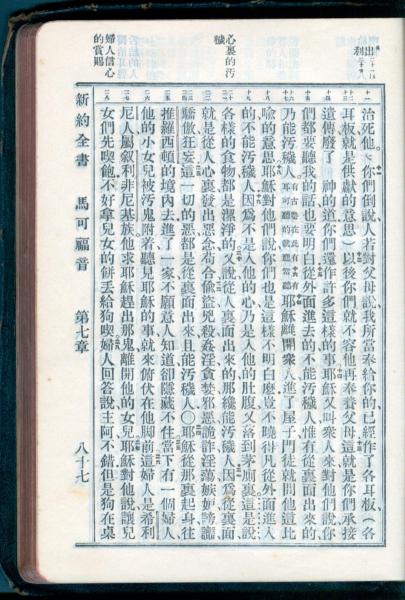 治死他、你們倒說人若對父母說我所當奉給你的已經作了各耳板、(各
耳板就是供獻的意思)以後你們就不容他再奉養父母這就是你們承接
遺傳廢了　神的道你們還作許多這樣的事耶穌又叫衆人來對他們說你
們都要聽我的話也要明白從外面進去的不能汚穢人惟有從裏面出來的
乃能汚穢人有古卷在此有有耳可聽的就應當聽耶穌離開衆人進了屋子門徒就問他這比
喻的意思耶穌對他們說你們也是這樣不明白麼豈不曉得凡從外面進入
的不能汚穢人因爲不是入他的心乃是入他的肚腹又落到茅厠裏這是說
各樣的食物都是潔淨的又說從人裏面出來的那纔能汚穢人因爲從裏面
就是從人心裏發出惡念苟合偷盜兇殺姦淫貪婪邪惡詭詐淫蕩嫉妒謗讟
驕傲狂妄這一切的惡都是從裏面出來且能汚穢人○耶穌從那裏起身往
推羅西頓的境內去進了一家不願意人知道卻隱藏不住當下有一個婦人
他的小女兒被汚鬼附着聽見耶穌的事就來俯伏在他脚前這婦人是希利
尼人屬敘利非尼基族他求耶穌趕出那鬼離開他的女兒耶穌對他說讓兒
女們先喫飽不好拿兒女的餅丟給狗喫婦人回答說主阿不錯但是狗在桌
心裏的汚
穢
婦人信心
的賞賜
新約全書　馬可福音　第七章　八十七